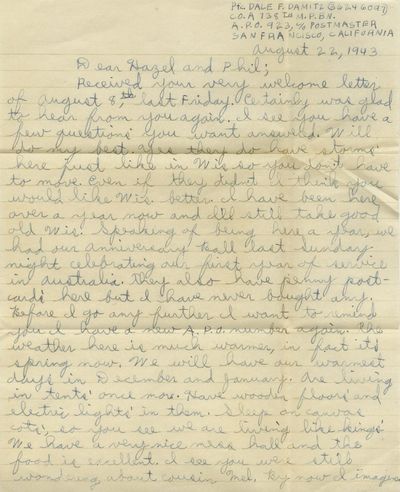 Pfc. DALE F. DAMITZ (36246097)
CO. A 738TH M.P. BN.
A.P.O. 923, c/o POSTMASTER
SAN FRANCISCO, CALIFORNIA
August 22, 1943
Dear Hazel and Phil;
Received your very welcome letter
of August 8,th last Friday. Certainly was glad
to hear from you again. I see you have a
few questions you want answered. Will
do my best. Yes they do have storms
here just like in Wis so you don't have
to move. Even if they didn't I think you
would like Wis. better. I have been here
over a year now and I'll still take good
old Wis. Speaking of being here a year, we
had our anniversary ball last Sunday
night celebrating our first year of service
in Australia. They also have penny post-
cards here but I have never bought any.
Before I go any further I want to remind
you I have a new A.P.O. number again. The
weather here is much warmer, in fact it's
spring now. We will have our warmest
days in December and January. Are living
in tents once more. Have wooden floors and
electric lights in them. Sleep on canvas
cots, so you see we are living like kings.
We have a very nice mess hall and the
food is excellent. I see you were still
wondering about cousin Mel. By now I imagine